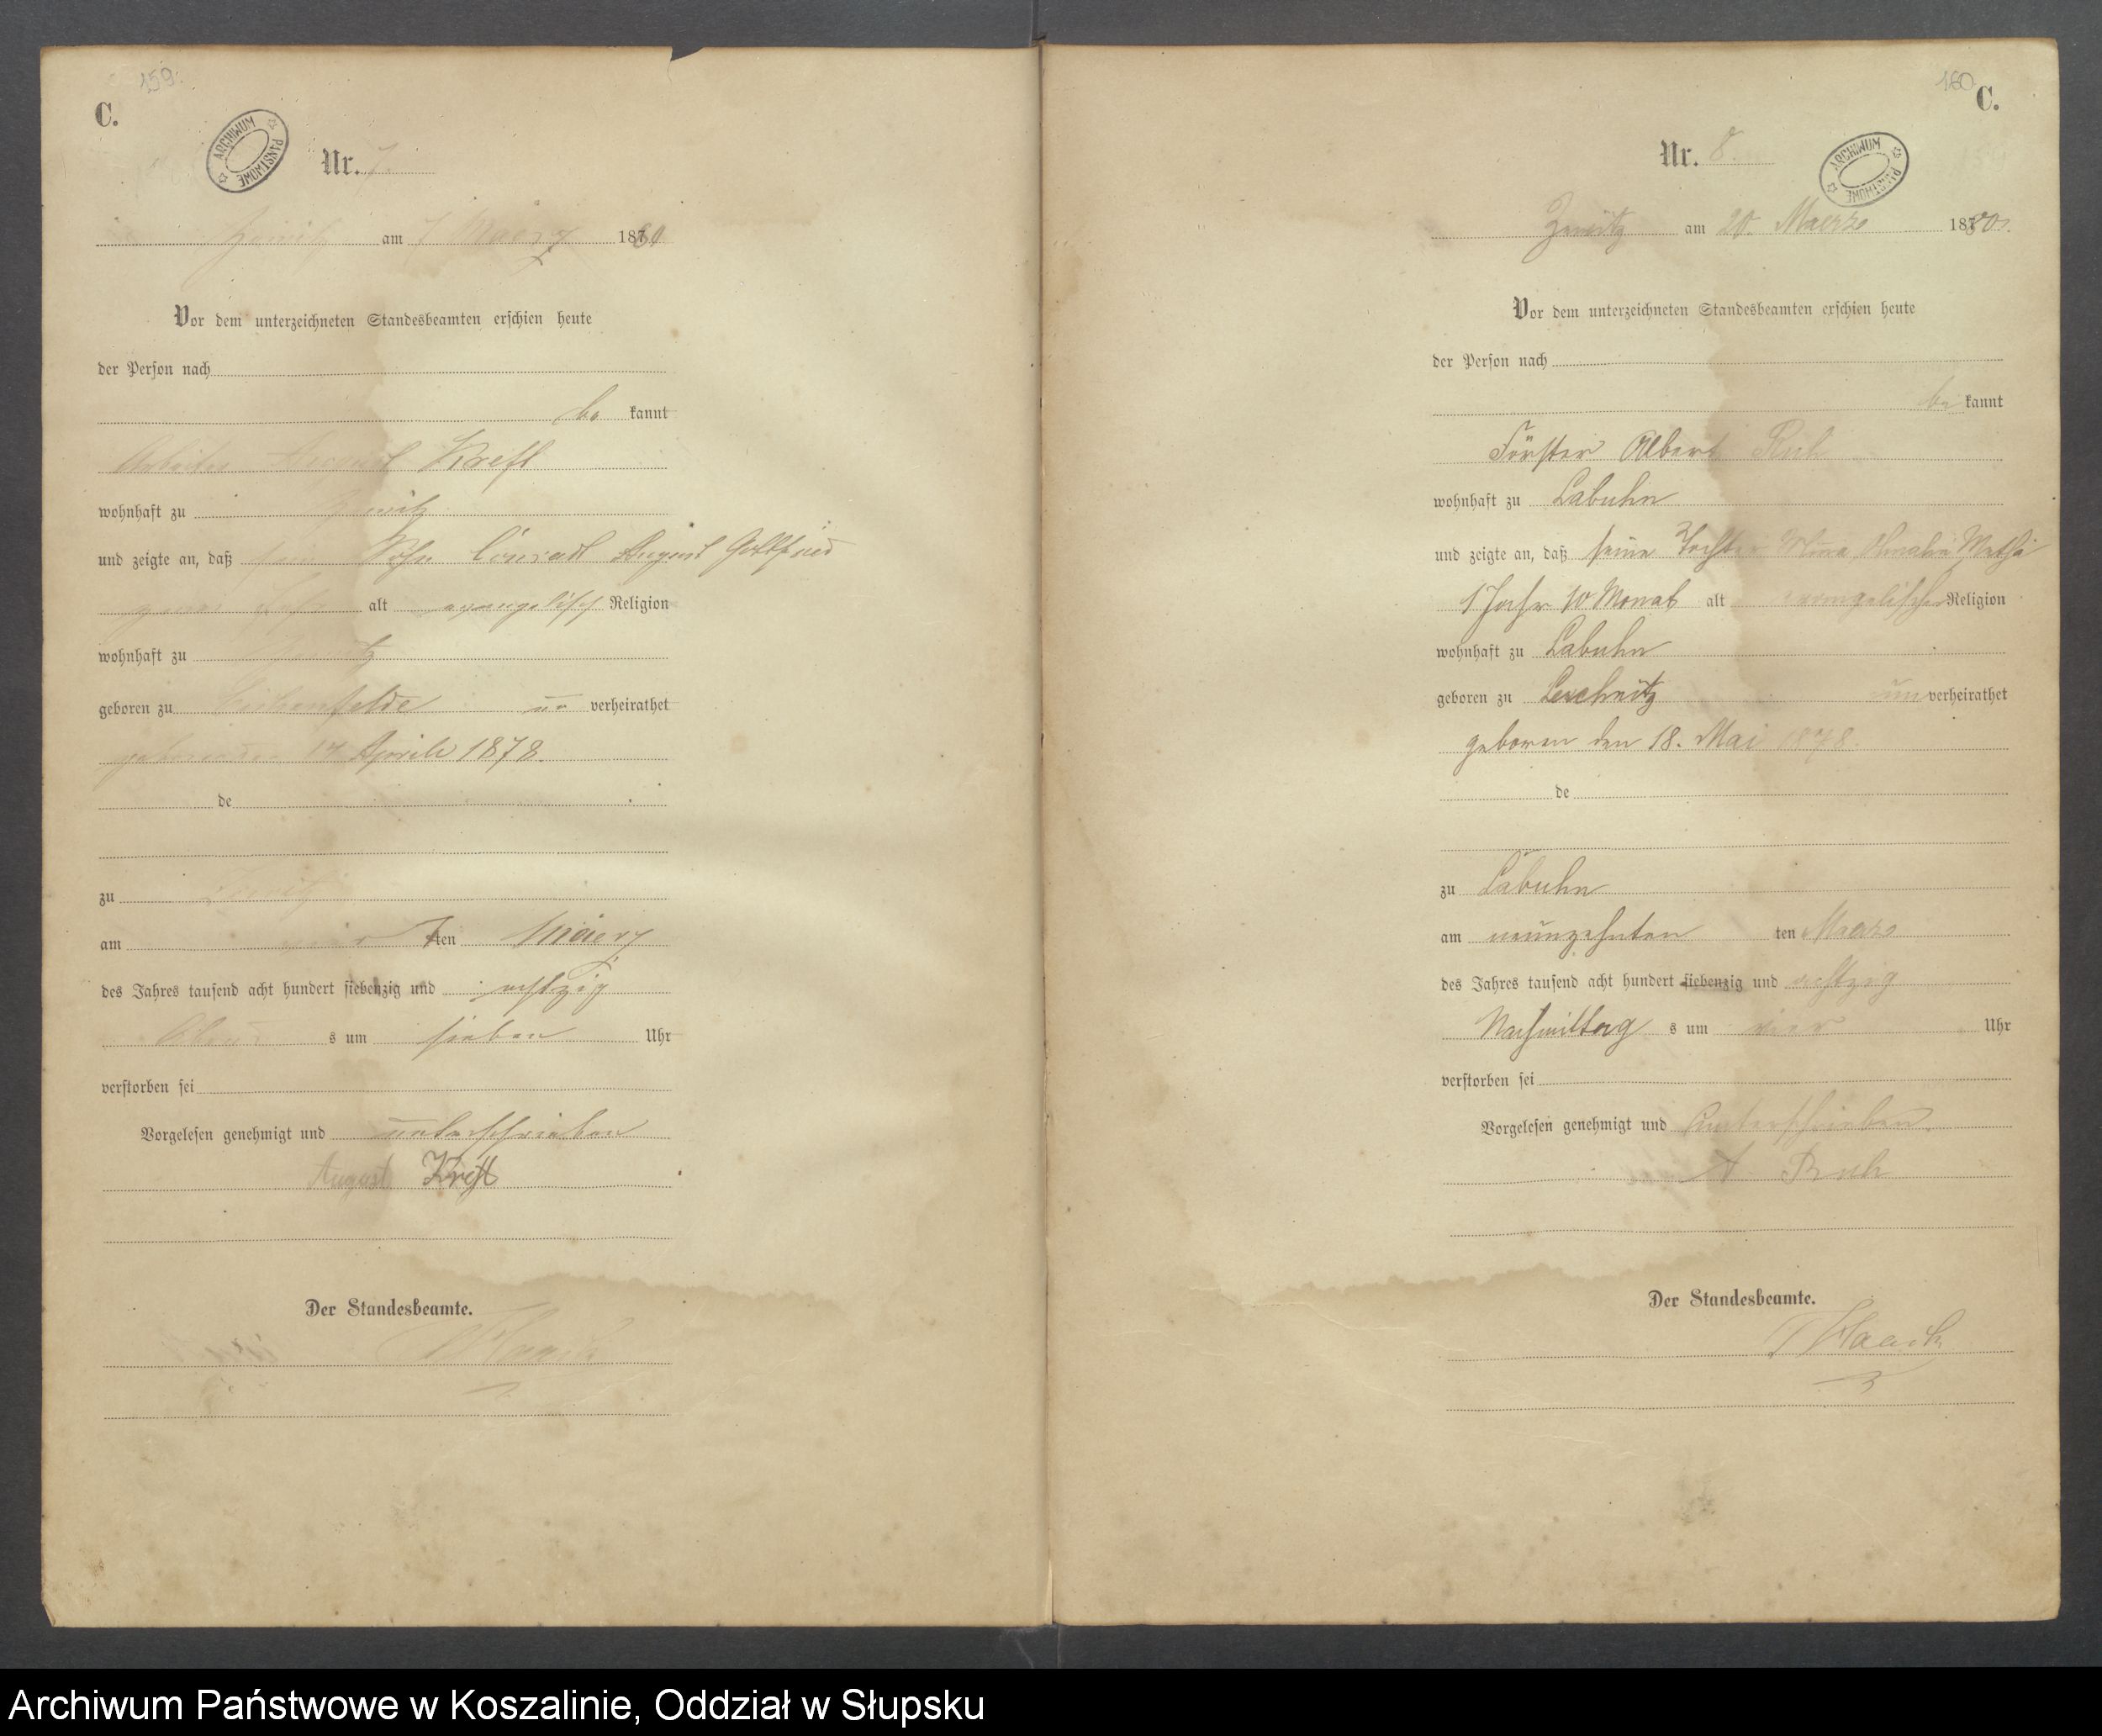 159.
C.
ARCHIWUM PAŃSTWOWE
Nr. 7.
Zewitz am 7 Maerz 1880
Vor dem unterzeichneten Standesbeamten erschien heute
der Person nach
be kannt
Arbeiter August Kreft
wohnhaft zu Zewitz
und zeigte an, daß sein Sohn Conrad August Gottfried
alt evangelisch Religion
wohnhaft zu Zewitz
geboren zu un verheirathet
geboren den Aprile 1878.
de
zu Zewitz
am ten Maerz
des Jahres tausend acht hundert siebenzig und achtzig
Abend s um sieben Uhr
verstorben sei
Vorgelesen genehmigt und unterschrieben
August Kreft
Der Standesbeamte.
Haack
160
C.
ARCHIWUM PAŃSTWOWE
Nr. 8.
Zewitz am 20. Maerz 1880.
Vor dem unterzeichneten Standesbeamten erschien heute
der Person nach
be kannt
Förster Albert Ruh
wohnhaft zu Labuhn
und zeigte an, daß seine Tochter Amalie
1 Jahr 10 Monat alt evangelischer Religion
wohnhaft zu Labuhn
geboren zu Leschnitz un verheirathet
geboren den 18. Mai 1878.
de
zu Labuhn
am neunzehnten ten Maerz
des Jahres tausend acht hundert siebenzig und achtzig
Nachmittag s um vier Uhr
verstorben sei
Vorgelesen genehmigt und unterschrieben
A Ruh
Der Standesbeamte.
Haack
Archiwum Państwowe w Koszalinie, Oddział w Słupsku